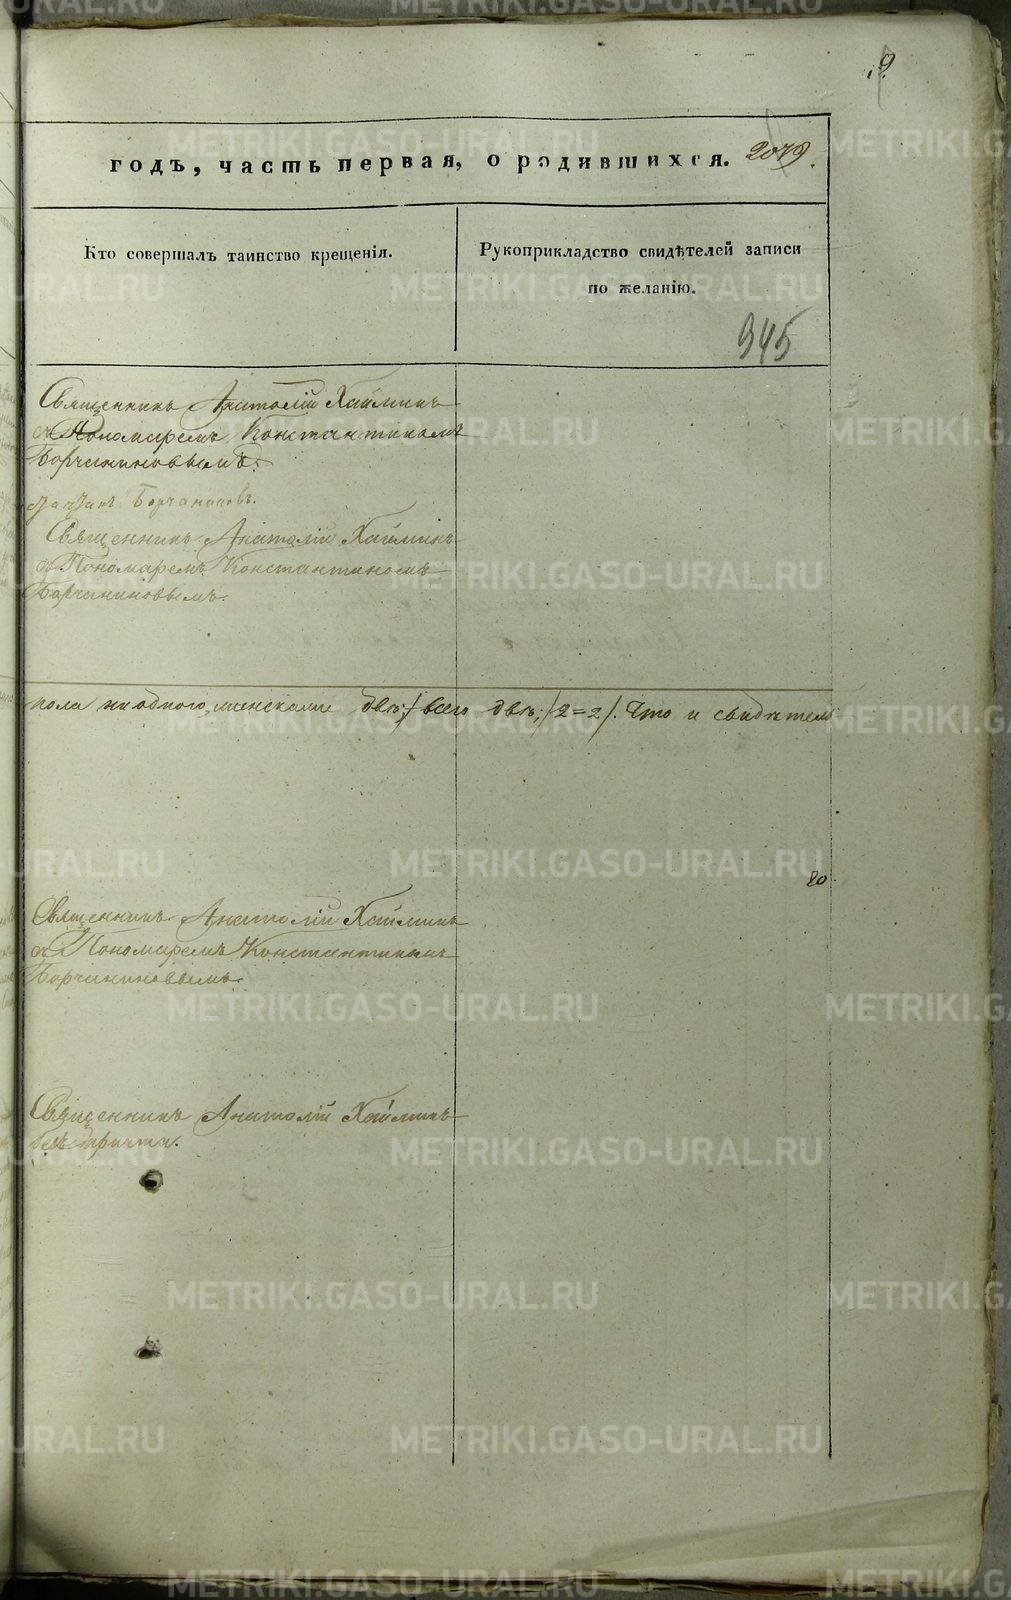 9.
годъ, часть первая, о родившихся. 2079.
Кто совершалъ таинство крещенія.
Рукоприкладство свидѣтелей записи
по желанію.
945
Священникъ Анатолій Хаймикъ
съ Пономаремъ Константиномъ
Борчаниновымъ.
Борчаниновъ.
Священникъ Анатолій Хаймикъ
съ Пономаремъ Константиномъ
Борчаниновымъ.
пола ни одного, женскаго двѣ; / всего двѣ; / 2=2 /. Что и свидѣтель
Священникъ Анатолій Хаймикъ
съ Пономаремъ Константиномъ
Борчаниновымъ.
Священникъ Анатолій Хаймикъ
безъ причта.
METRIKI.GASO-URAL.RU